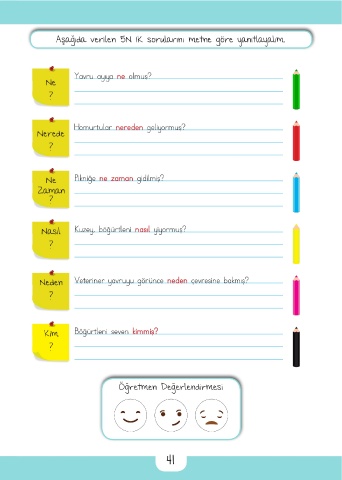 Aşağıda verilen 5N 1K sorularını metne göre yanıtlayalım.
Ne
?
Yavru ayıya ne olmuş?
Nerede
?
Homurtular nereden geliyormuş?
Ne
Zaman
?
Pikniğe ne zaman gidilmiş?
Nasıl
?
Kuzey, böğürtleni nasıl yiyormuş?
Neden
?
Veteriner yavruyu görünce neden çevresine bakmış?
Kim
?
Böğürtleni seven kimmiş?
Öğretmen Değerlendirmesi
41